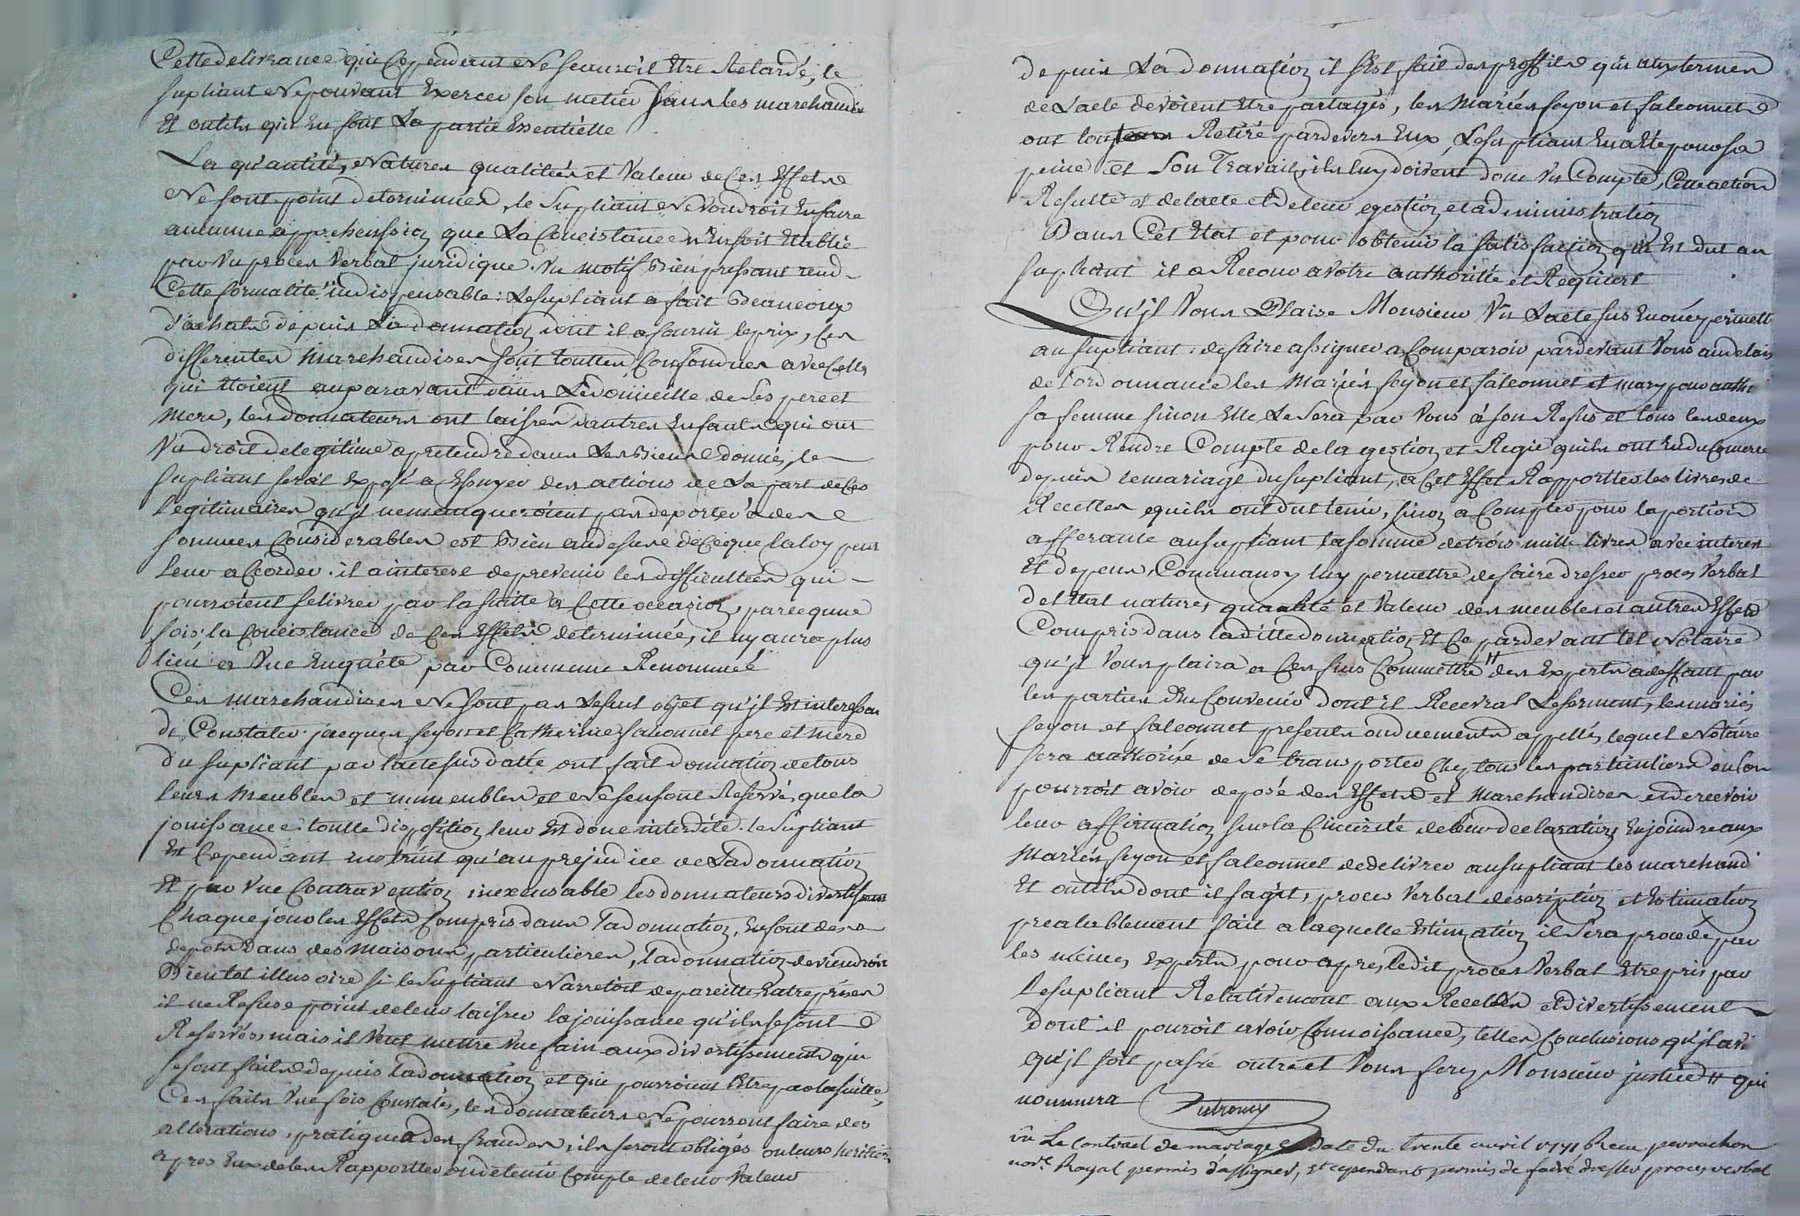 Cette delivrance qui Cependant ne scauroit Etre Retardé, le
supliant ne pouvant Exercer son metier sans les marchandis
Et outils qui En font La partie Essentielle
La quantité, Natures qualitées et Valeur de Ces Effets
Ne sont point determinnes, le Supliant ne voudroit En faire
aucunne apprehenssion que La Concistance n'En soit Etablie
par un proces Verbal juridique. un motif Bien pressant rend
Cette formalité indispensable : Le supliant a fait Beaucoup
d'achats depuis La donnation dont il a fourni le prix, Ces
differentes Marchandises sont touttes Confondues avec Celles
qui Etoient auparavant dans Le domicille de ses pere et
mere, les donnateurs ont laissés d'autres Enfants qui ont
Un droit de legitime a pretendre dans Les Biens donnés, le
supliant seroit Exposé a Essuyer des actions de La part de Ces
Legitimaires qu'jl ne manqueroient pas de porter a des
sommes Considerables est Bien au desus de Ce que la loy peut
leur accorder. il a interest de prevenir les difficultées qui
pourroient s'elever par la suitte a Cette occasion, parce qu'une
fois la Concistance de Ces Effets determinée, il ny aura plus
lieu a Une Enquéte par Commune Renommée
Ces marchandises Ne sont pas Le seul objet qu'jl Est interessan
de Constater. jacques feyon et Catherine falconnet pere et mere
du supliant par l'acte sus datté ont fait donnation de tous
leurs Meubles et immeubles et Ne sen sont Reservé que la
jouissance. toutte disposition leur Est donc interdite. le Supliant
Est Cependant instruit qu'au prejudice de La donnation
Et par Une Contravention inexcusable les donnateurs divertissent
Chaque jour les Effets Compris dans La donnation, En font des
depots dans des maisons particulieres, La donnation deviendroit
Bientot illusoire si le Supliant N'arretoit de pareilles Entreprises
il ne Refuse point de leur laisser la jouissance qu'ils se sont
Reservés mais il Veut mettre Une fain aux divertissements qui
se sont faits depuis La donnation et qui pourroient Etre par la suitte
Ces faits Une fois Constatés, les donnateurs Ne pourront faire des
allerations, pratiquer des fraudes, ils seront obligés ou leurs heritiers
apres Eux de les Rapportter ou de tenir Compte de leur Valeur
depuis La donnation il s'Est fait des proffits qui aux termes
de L'acte devoient Etre partagés, les Mariés feyon et falconnet
ont toujours Retiré pardevers Eux, Le supliant En a Eté pour sa
peine et Son Travail, ils luy doivent donc Un Compte, Cette action
Resulte et de l'acte et de leur gestion et administration
Dans Cet Etat et pour obtenir la satisfaction qui Est dut au
supliant il a Recour a votre authoritée et Requiert
Qu'jl Vous Plaise Monsieur Vu L'acte sus Enoncé permett
au supliant de faire assigner a Comparoir pardevant Vous au delais
de l'ordonnance les Mariés feyon et falconnet et mary pour auth
sa femme sinon Elle Le Sera par Vous à son Refus et tous les deux
pour Rendre Compte de la gestion et Regie quils ont Eu du Comerce
depuis le mariage du supliant, a Cet Effet Rapportter les livres de
Recettes qu'ils ont dut tenir, sinon a Compter pour la portion
afferante au supliant la somme de trois mille livres avec interest
Et depens, Commansy luy permettre de faire dresser proces Verbal
d'Etat nature, quantité et Valeur des meubles et autres Effets
Compris dans la ditte donnation Et Ce pardevant tel Notaire
qu'jl Vous plaira a Ces fins Commettre # des Experts a deffaut par
les parties d'En Convenir dont il Recevrat Le serment, les mariés
feyon et falconnet presents ou duements appellés, lequel Notaire
sera authorisé de Se transporter Chez tous les particuliers ou l'on
pourroit avoir deposé des Effets et Marchandises et de recevoir
leur affirmation sur la Cincerité de leur declaration, Enjoindre aux
Mariés feyon et falconnet de delivrer au supliant les marchand
Et outils dont il sagit, proces Verbal description et Estimation
prealablement fait a laquelle Estimation il Sera procedé par
les mêmes Experts pour apres, le dit proces Verbal Etre pris par
Le supliant Relativement aux Recellés et divertissement
Dont il pouroit avoir Connoissance, telles Conclusions qu'jl avi
qu'jl soit passé outre et Vous ferez Monsieur justice # qui
nommera Dutroncy
vu Le Contract de mariage En Date du trente avril 1771 Recu perrachon
no.re Royal permis d'assigner, Et cependant permis de faire dresser proces verbal